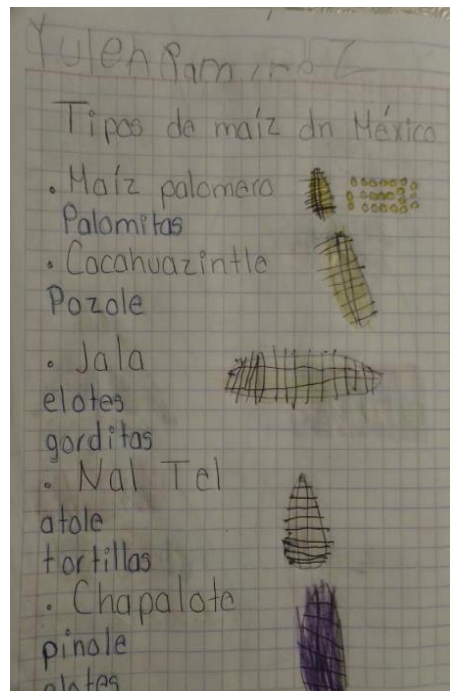 Yulen Ramirez
Tipos de maíz dn México
. Maíz palomero
Palomitas
. Cacahuazintle
Pozole
. Jala
elotes
gorditas
. Nal Tel
atole
tortillas
. Chapalote
pinole
elotes